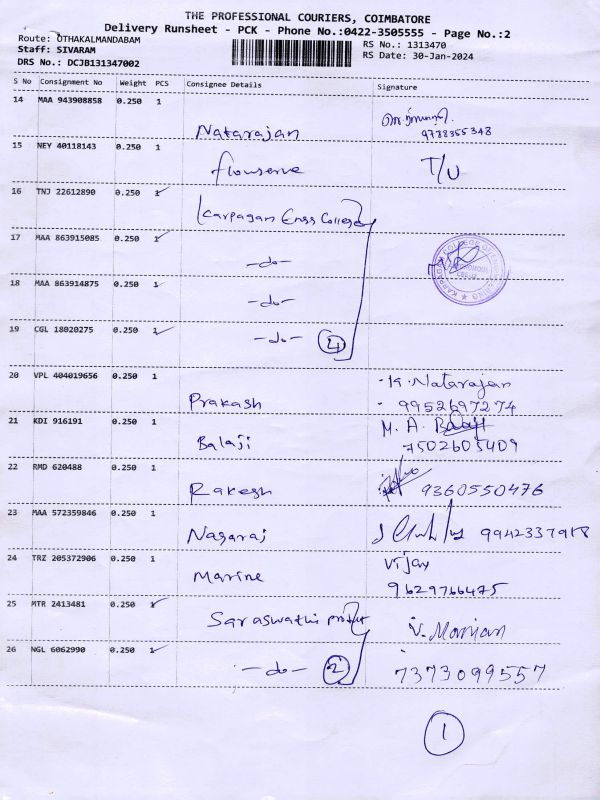 THE PROFESSIONAL COURIERS, COIMBATORE
Delivery Runsheet - PCK - Phone No.:0422-3505555 - Page No.:2
Route: OTHAKALMANDABAM
Staff: SIVARAM
DRS No.: DCJB131347002
RS No.: 1313470
RS Date: 30-Jan-2024
S No Consignment No Weight PCS Consignee Details Signature
14 MAA 943908858 0.250 1 Natarajan
9788355348
15 NEY 40118143 0.250 1 flowserve T/U
16 TNJ 22612890 0.250 1 Karpagam Engg College
17 MAA 863915085 0.250 1 -do-
18 MAA 863914875 0.250 1 -do-
19 CGL 18020275 0.250 1 -do- 4
20 VPL 404019656 0.250 1 Prakash K. Natarajan
9952697274
21 KDI 916191 0.250 1 Balaji M. A. Balaji
7502605409
22 RMD 620488 0.250 1 Rakesh 9360550476
23 MAA 572359846 0.250 1 Nagaraj 9942337918
24 TRZ 205372906 0.250 1 Marine Vijay
9629766475
25 MTR 2413481 0.250 1 Saraswathi
26 NGL 6062990 0.250 1 -do- 2 7373099557
1